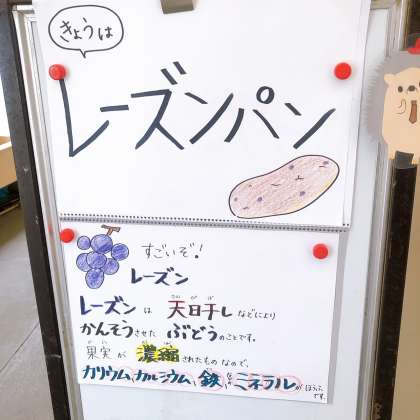 きょうは
レーズンパン
すごいぞ!
レーズン
レーズンは 天日干しなどにより
かんそうさせた ぶどうのことです。
果実が 濃縮されたものなので、
カリウム、カルシウム、鉄などミネラルがほうふ
です。